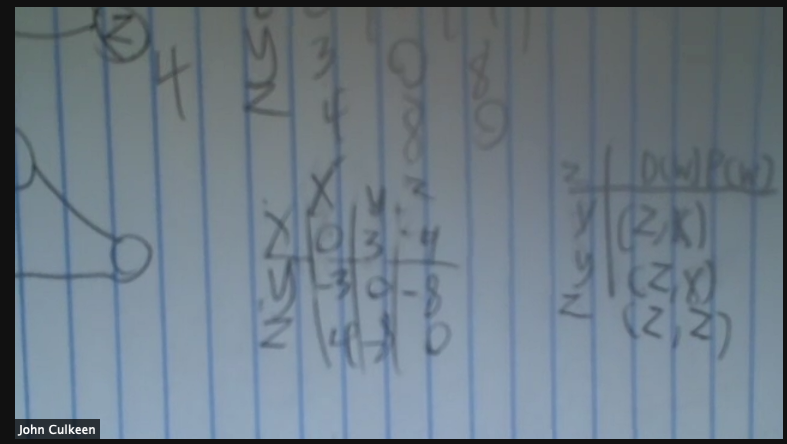 Z
4
y 3 0 8
z 4 8 0
x y z
x 0 3 4
y 3 0 8
z 4 8 0
z D(w) P(w)
y (z,x)
y (z,x)
z (z,z)
John Culkeen